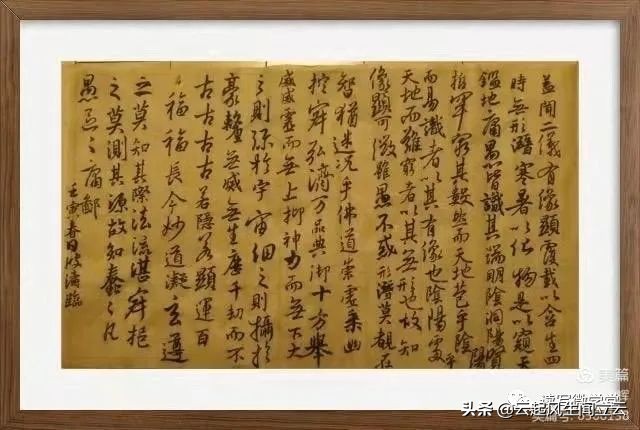 蓋聞二儀有像顯覆載以含生四
時無形潛寒暑以化物是以窺天
鑑地庸愚皆識其端明陰洞陽賢
哲罕窮其數然而天地苞乎陰陽
而易識者以其有像也陰陽處乎
天地而難窮者以其無形也故知
像顯可徵雖愚不惑形潛莫覩在
智猶迷況乎佛道崇虛乘幽
控寂弘濟万品典御十方舉
威威靈而無上抑神力而無下大
之則彌於宇宙細之則攝於
豪釐無滅無生歷千劫而不
古古古古若隱若顯運百
福福長今妙道凝玄遵
之莫知其際法流湛寂挹
之莫測其源故知蠢々凡
愚區々庸鄙
壬寅春日波濤臨
美篇
头条